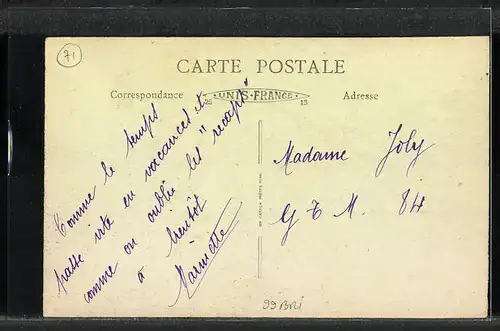 71
CARTE POSTALE
Correspondance
25 UNIS-FRANCE 13
Adresse
Comme le temps
passe vite en vacances et
comme on oublie les "recaps"
à bientôt
Madame Joly
G T M. 84
99 BRI